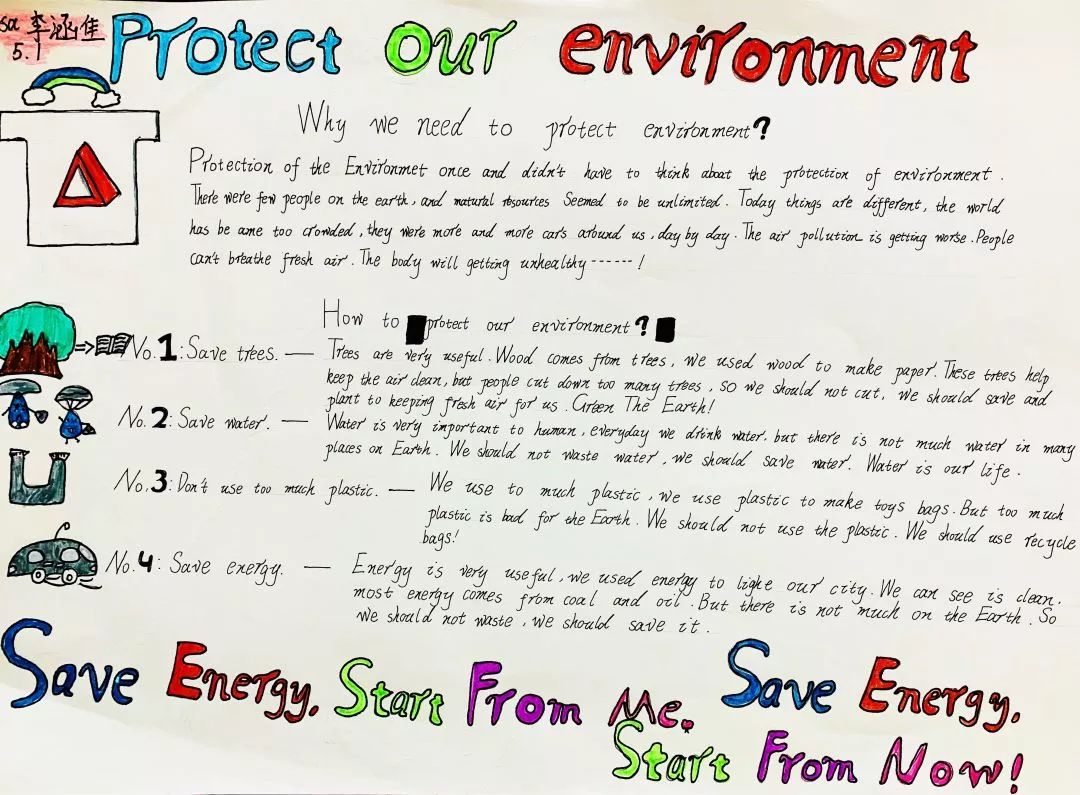 sa 李涵佳
5.1
Protect our environment
Why we need to protect environment?
Protection of the Environmet once and didn't have to think about the protection of environment.
There were few people on the earth, and natural resources Seemed to be unlimited. Today things are different, the world
has be ame too crowded, they were more and more cars around us, day by day. The air pollution is getting worse. People
can't breathe fresh air. The body will getting unhealthy ------ !
How to protect our environment?
No.1: Save trees. — Trees are very useful. Wood comes from trees, we used wood to make paper. These trees help
keep the air clean, but people cut down too many trees, so we should not cut, we should save and
plant to keeping fresh air for us. Green The Earth!
No.2: Save water. — Water is very important to human, everyday we drink water, but there is not much water in many
places on Earth. We should not waste water, we should save water. Water is our life.
No.3: Don't use too much plastic. — We use to much plastic, we use plastic to make toys bags. But too much
plastic is bad for the Earth. We should not use the plastic. We should use recycle
bags!
No.4: Save energy. — Energy is very useful, we used energy to light our city. We can see is clean.
most energy comes from coal and oil. But there is not much on the Earth. So
we should not waste, we should save it.
Save Energy. Start From Me. Save Energy.
Start From Now!